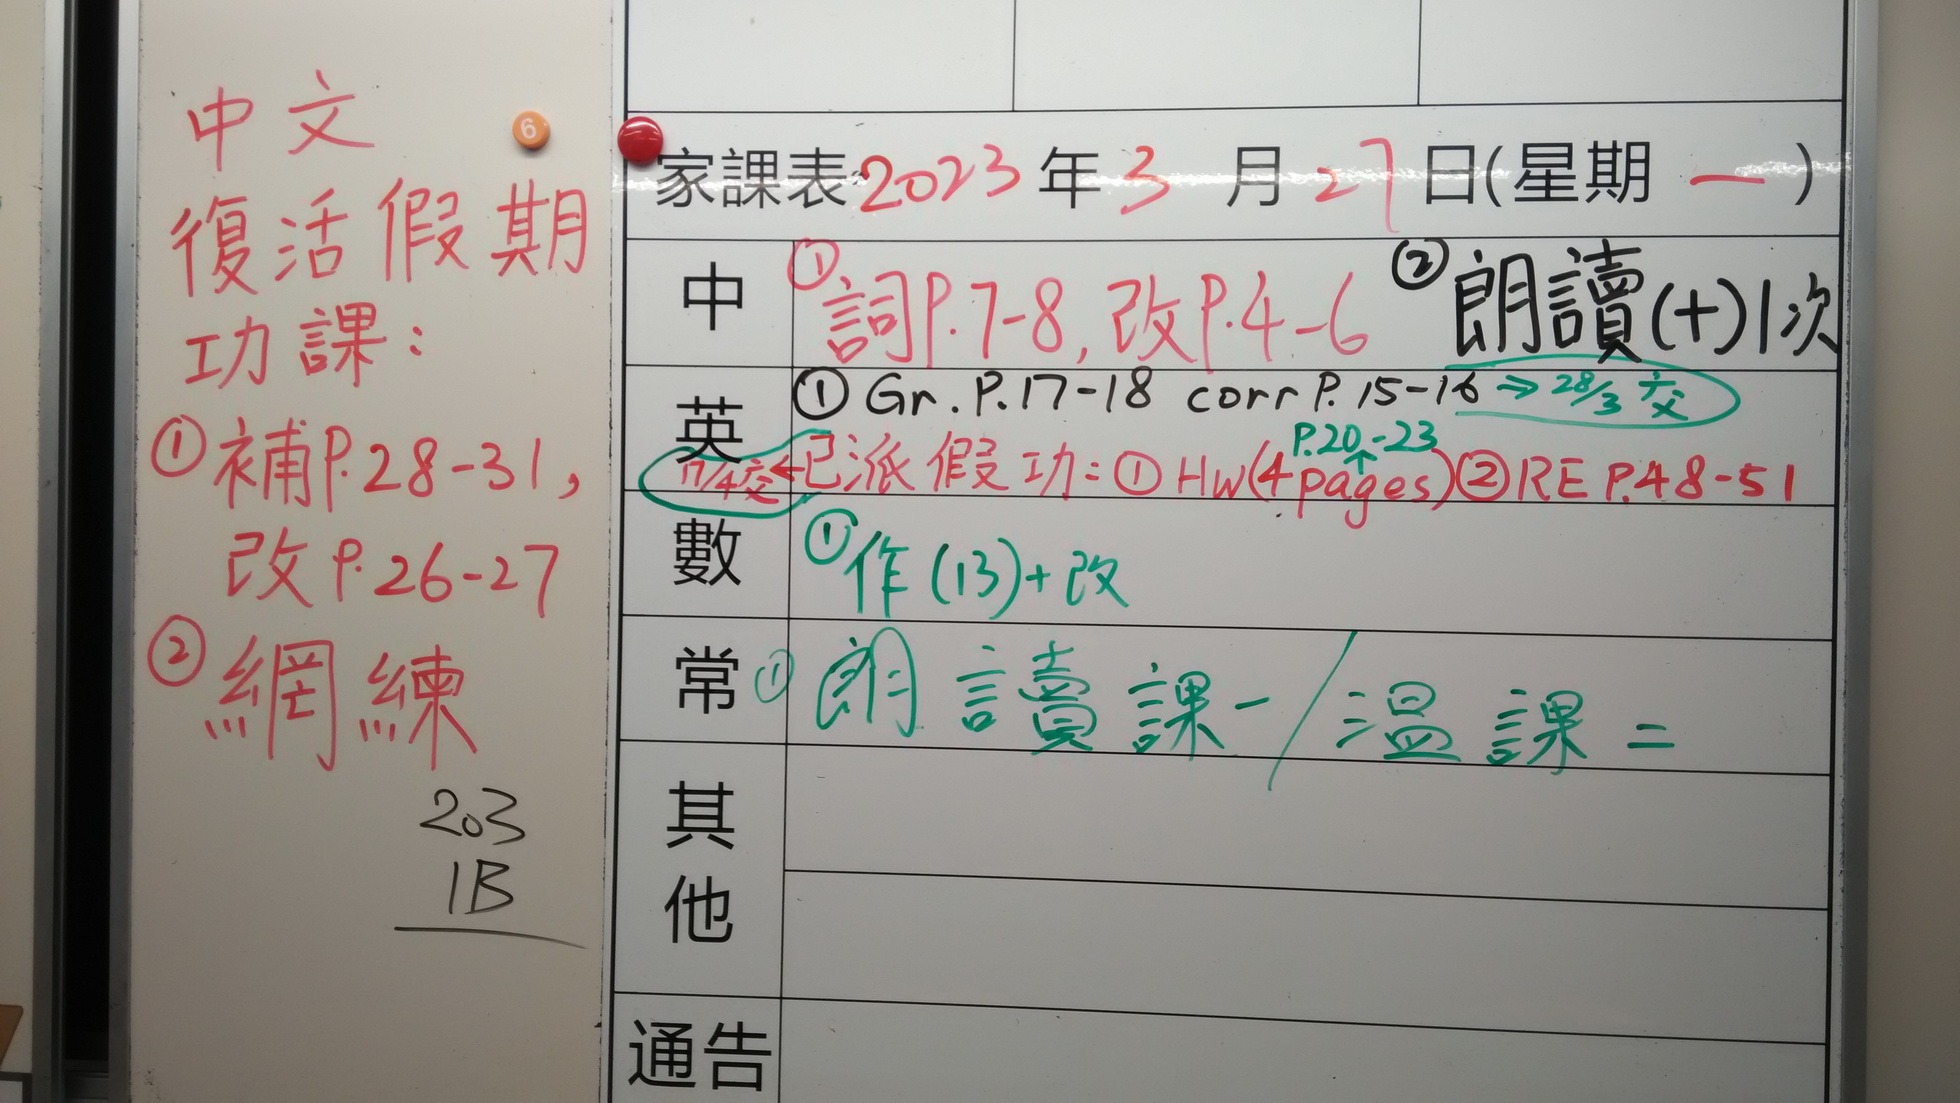 中文
復活假期
功課：
①補P.28-31，
改P.26-27
②網練
203
1B
6
家課表2023年3月27日(星期一)
中 ①詞P.7-8，改P.4-6 ②朗讀(十)1次
英 ①Gr.P.17-18 corrP.15-16 ⇒ 28/3 交
P.20-23
17/4交←已派假功：①HW(4pages)②RE P.48-51
數 ①作(13)+改
常 ①朗讀課一/温課二
其他
通告